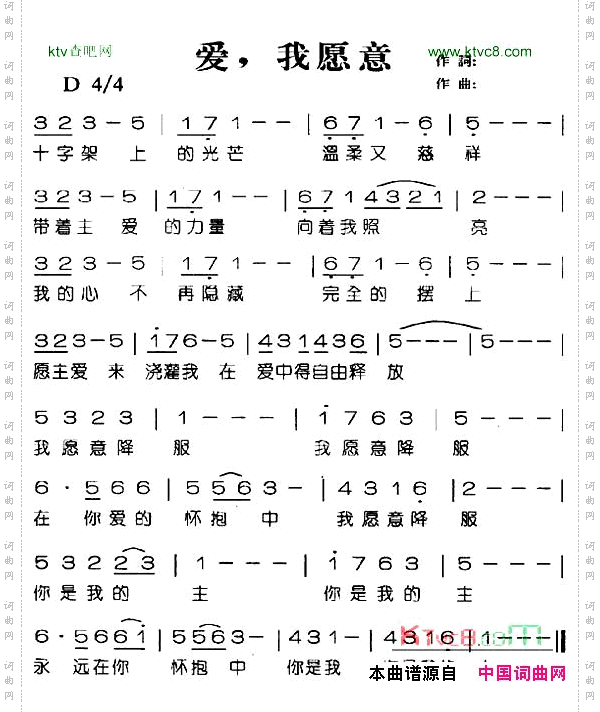 ktv查吧网
爱，我愿意
www.ktvc8.com
作 詞：
D 4/4
作 曲：
3 2 3 - 5 | 1 7 1 - - | 6 7 1 - 6 | 5 - - - |
十字架 上 的光芒 溫柔又 慈 祥
3 2 3 - 5 | 1 7 1 - - | 6 7 1 4 3 2 1 | 2 - - - |
带着主 爱 的力量 向着我照 亮
3 2 3 - 5 | 1 7 1 - - | 6 7 1 - 6 | 5 - - - |
我的心 不 再隐藏 完全的 摆 上
3 2 3 - 5 | 1 7 6 - 5 | 4 3 1 4 3 6 | 5 - - - | 5 - - - |
愿主爱 来 浇灌我 在 爱中得自由释 放
5 3 2 3 | 1 - - - | 1 7 6 3 | 5 - - - |
我愿意降 服 我愿意降 服
6 · 5 6 6 | 5 5 6 3 - | 4 3 1 6 | 2 - - - |
在 你爱的 怀抱 中 我愿意降 服
5 3 2 2 3 | 1 - - - | 1 7 6 3 | 5 - - - |
你是我的 主 你是我的 主
6 · 5 6 6 1 | 5 5 6 3 - | 4 3 1 - | 4 3 1 6 | 1 - - - ||
永 远在你 怀抱 中 你是我
KTvc8.com
本曲谱源自 中国词曲网
词曲网